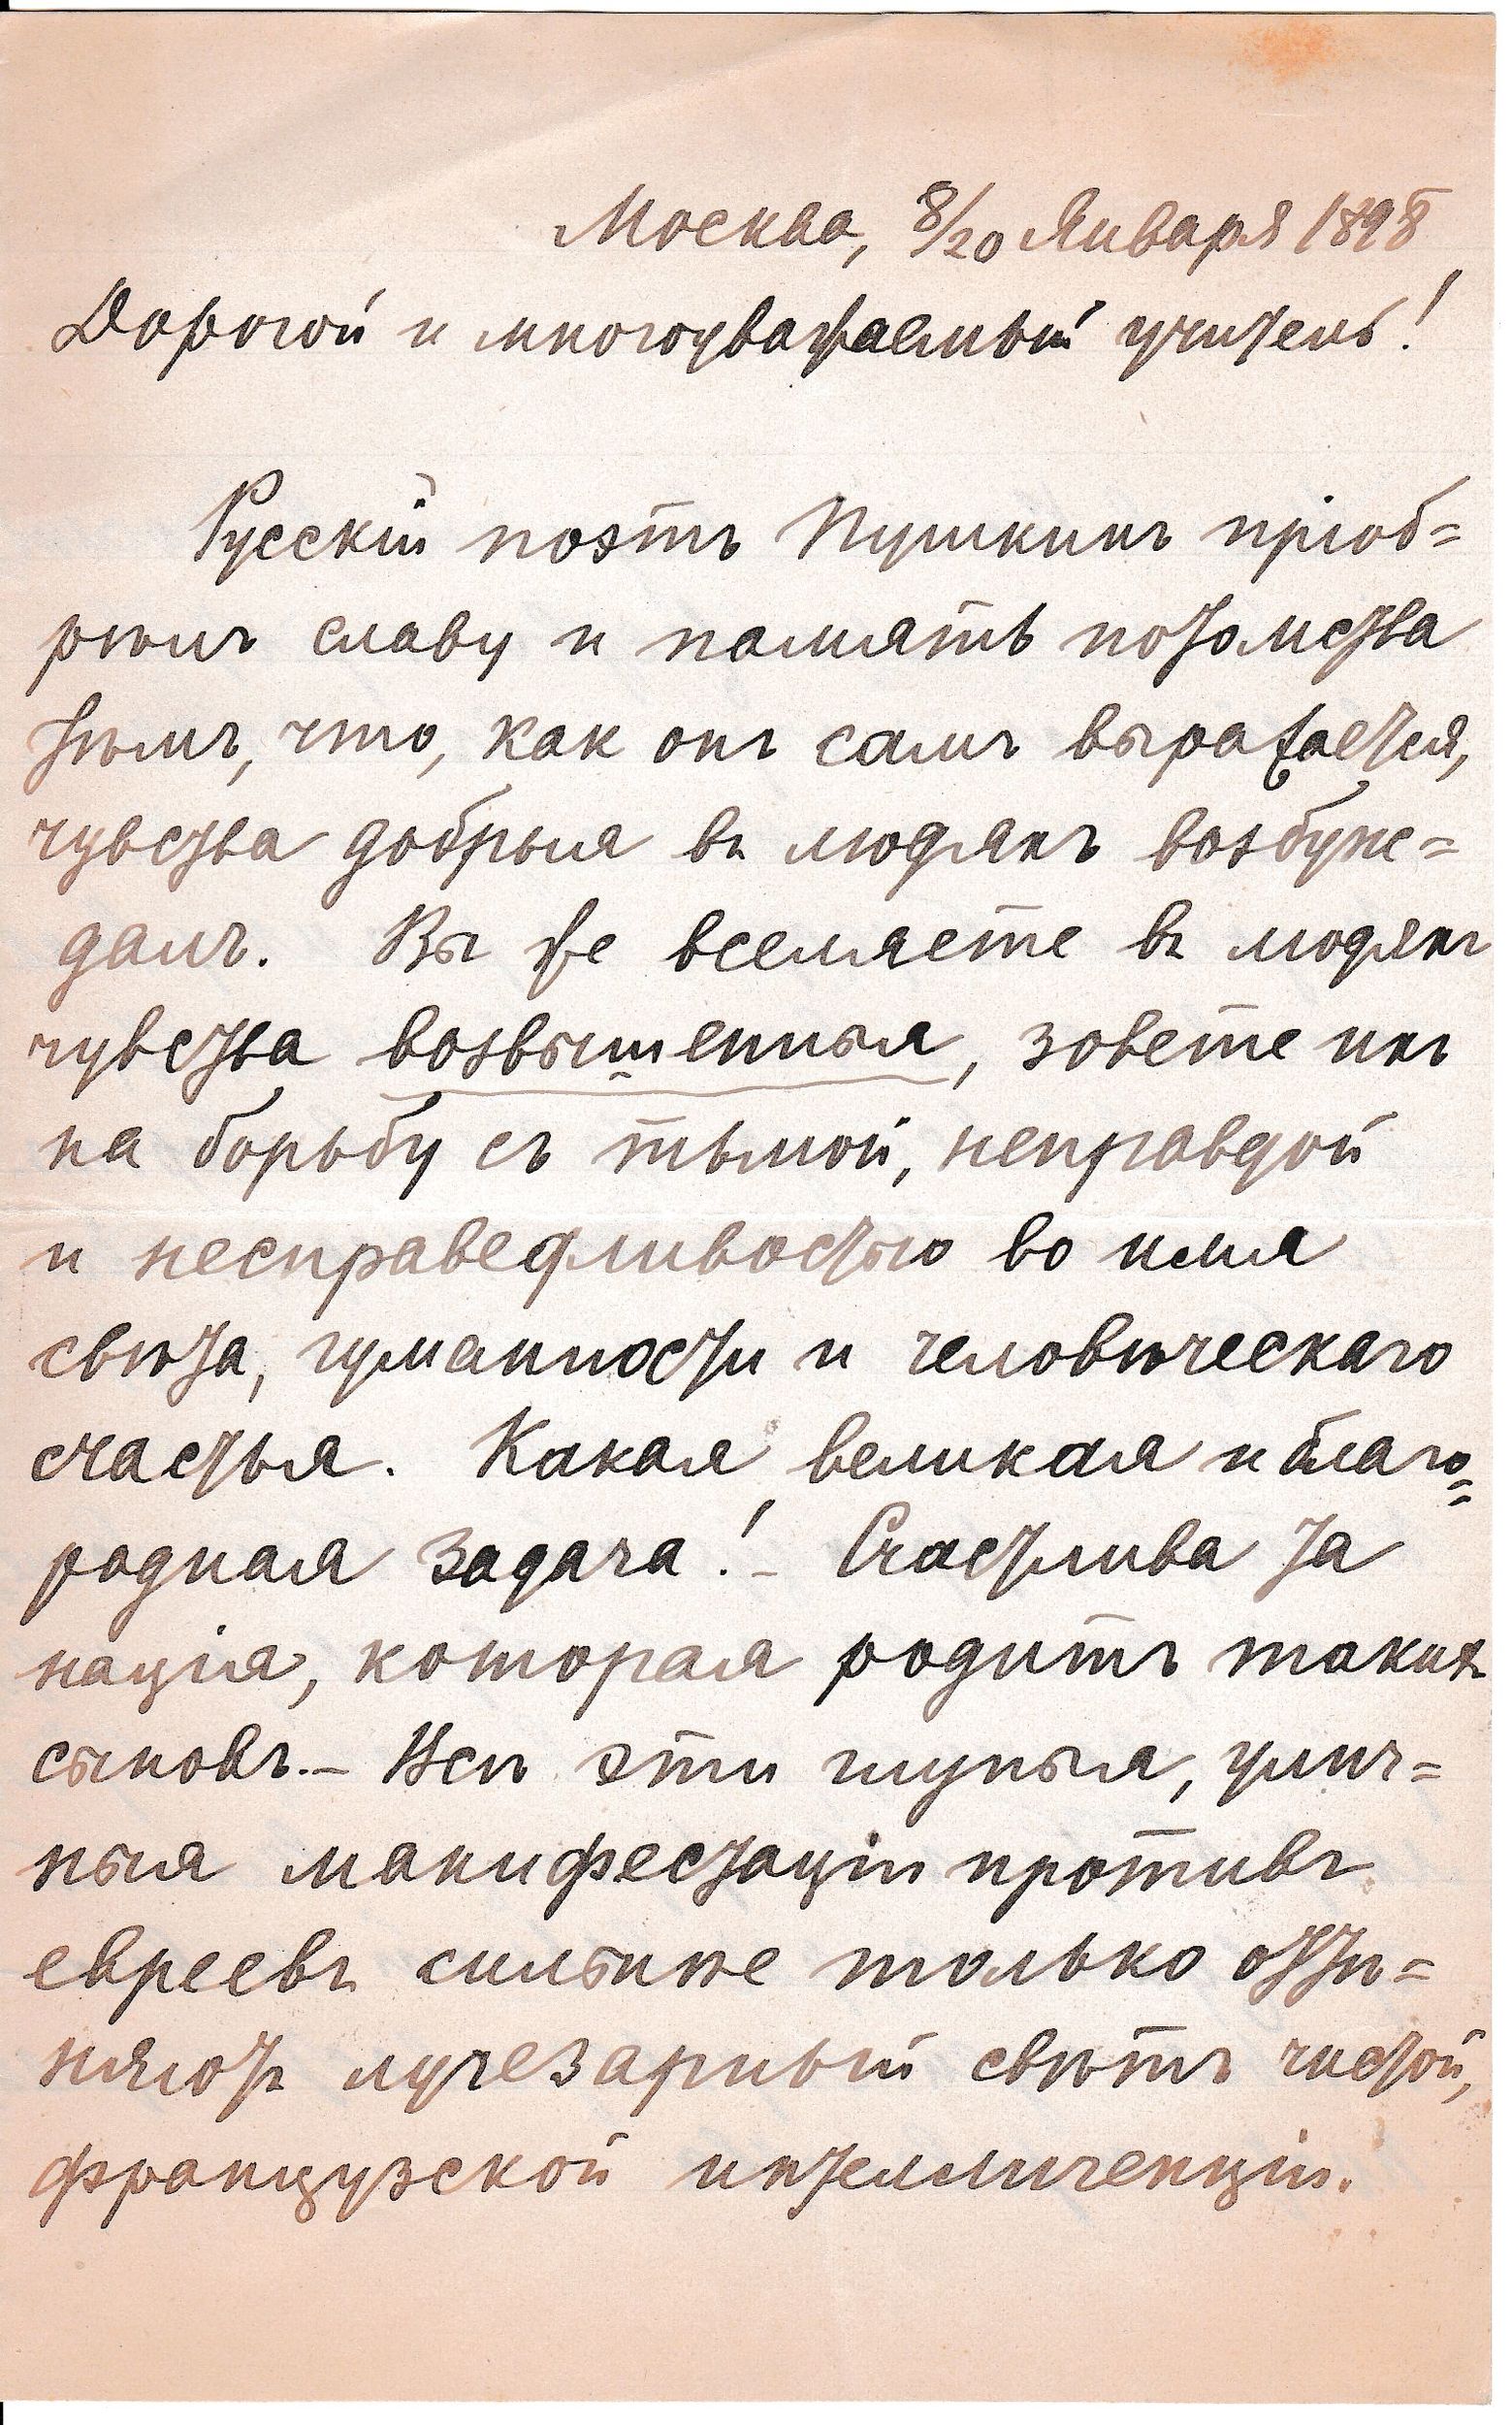 Москва, 8/20 Января 1898
Дорогой и многоуважаемый учитель!
Русскій поэтъ Пушкинъ пріоб=
рѣлъ славу и память потомства
тѣмъ, что, как онъ самъ выражается,
чувства добрыя въ людяхъ возбуж=
далъ. Вы же вселяете въ людяхъ
чувства возвышенныя, зовете ихъ
на борьбу съ тьмой, неправдой
и несправедливостью во имя
свѣта, гуманности и человѣческаго
счастья. Какая великая и благо=
родная задача! – Счастлива та
нація, которая родитъ такихъ
сыновъ. – Всѣ эти глупыя, улич=
ныя манифестаціи противъ
евреевъ сильнѣе только оттѣ=
няютъ лучезарный свѣтъ чистой,
французской интеллигенціи.